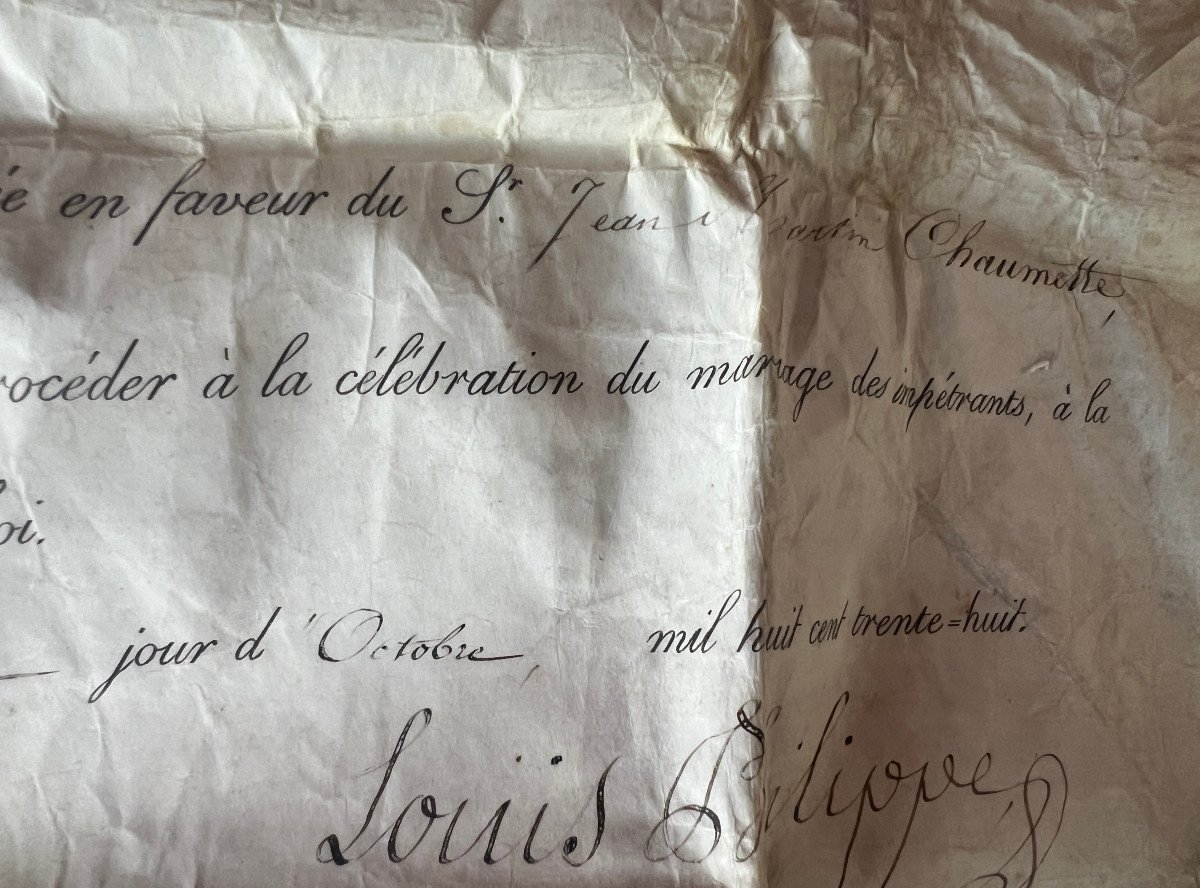 ée en faveur du Sr. Jean Martin Chaumette,
rocéder à la célébration du mariage des impétrants, à la
oi.
jour d'Octobre, mil huit cent trente=huit.
Louis Philippe